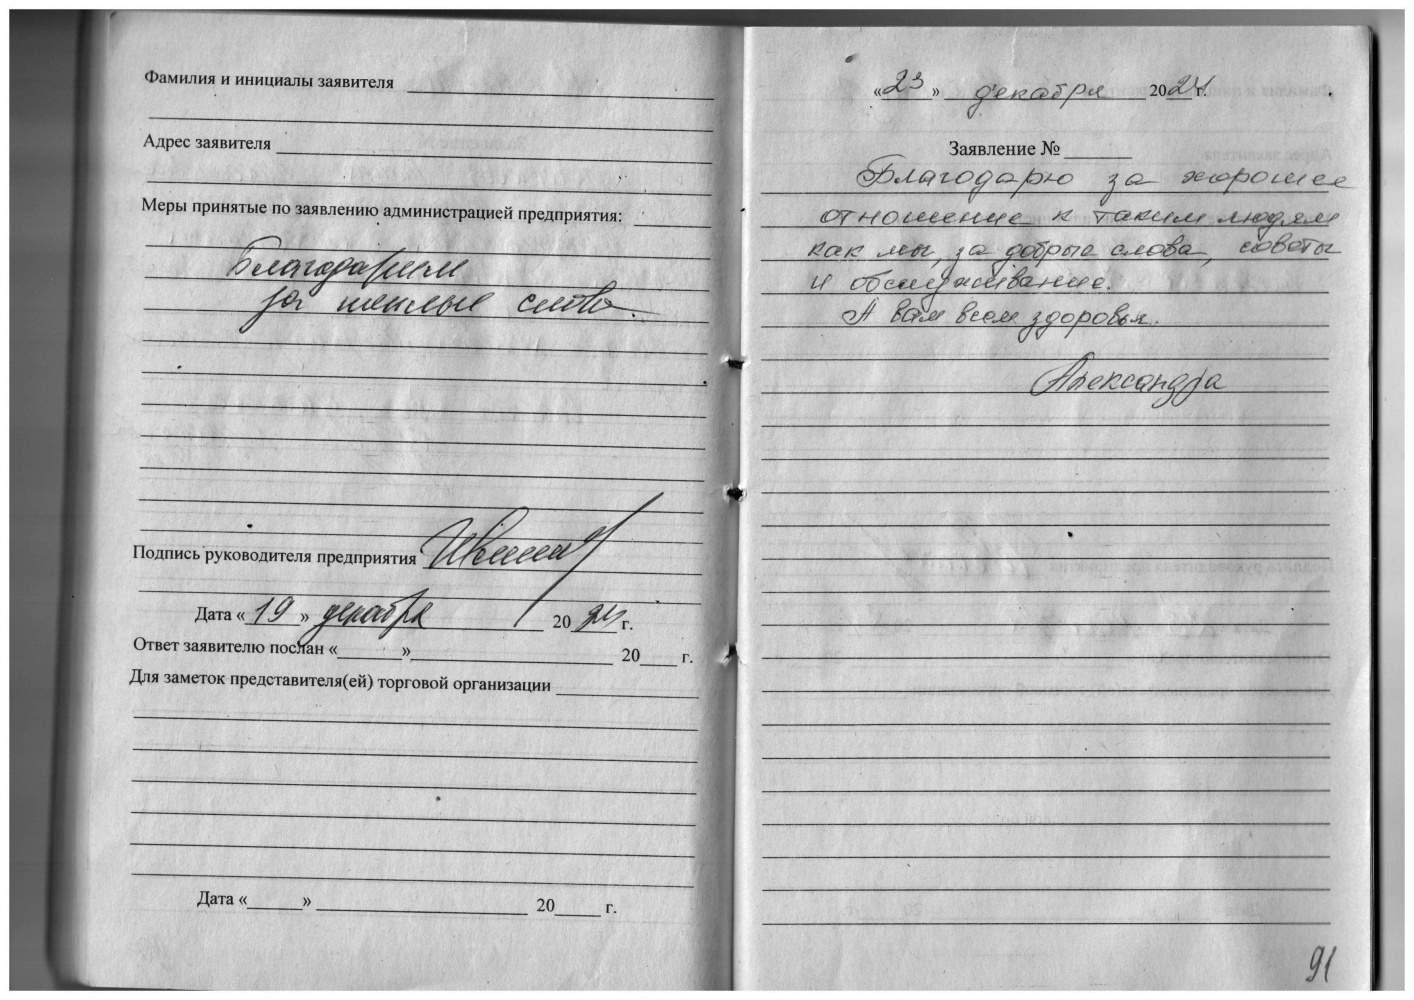 Фамилия и инициалы заявителя
Адрес заявителя
Меры принятые по заявлению администрацией предприятия:
Благодарим
за теплые слова.
Подпись руководителя предприятия
Дата «19» декабря 2024 г.
Ответ заявителю послан «   »    20   г.
Для заметок представителя(ей) торговой организации
Дата «   »    20   г.
«23» декабря 2024 г.
Заявление №
Благодарю за хорошее
отношение к таким людям
как мы, за добрые слова, советы
и обслуживание.
А вам всем здоровья.
Александра
91